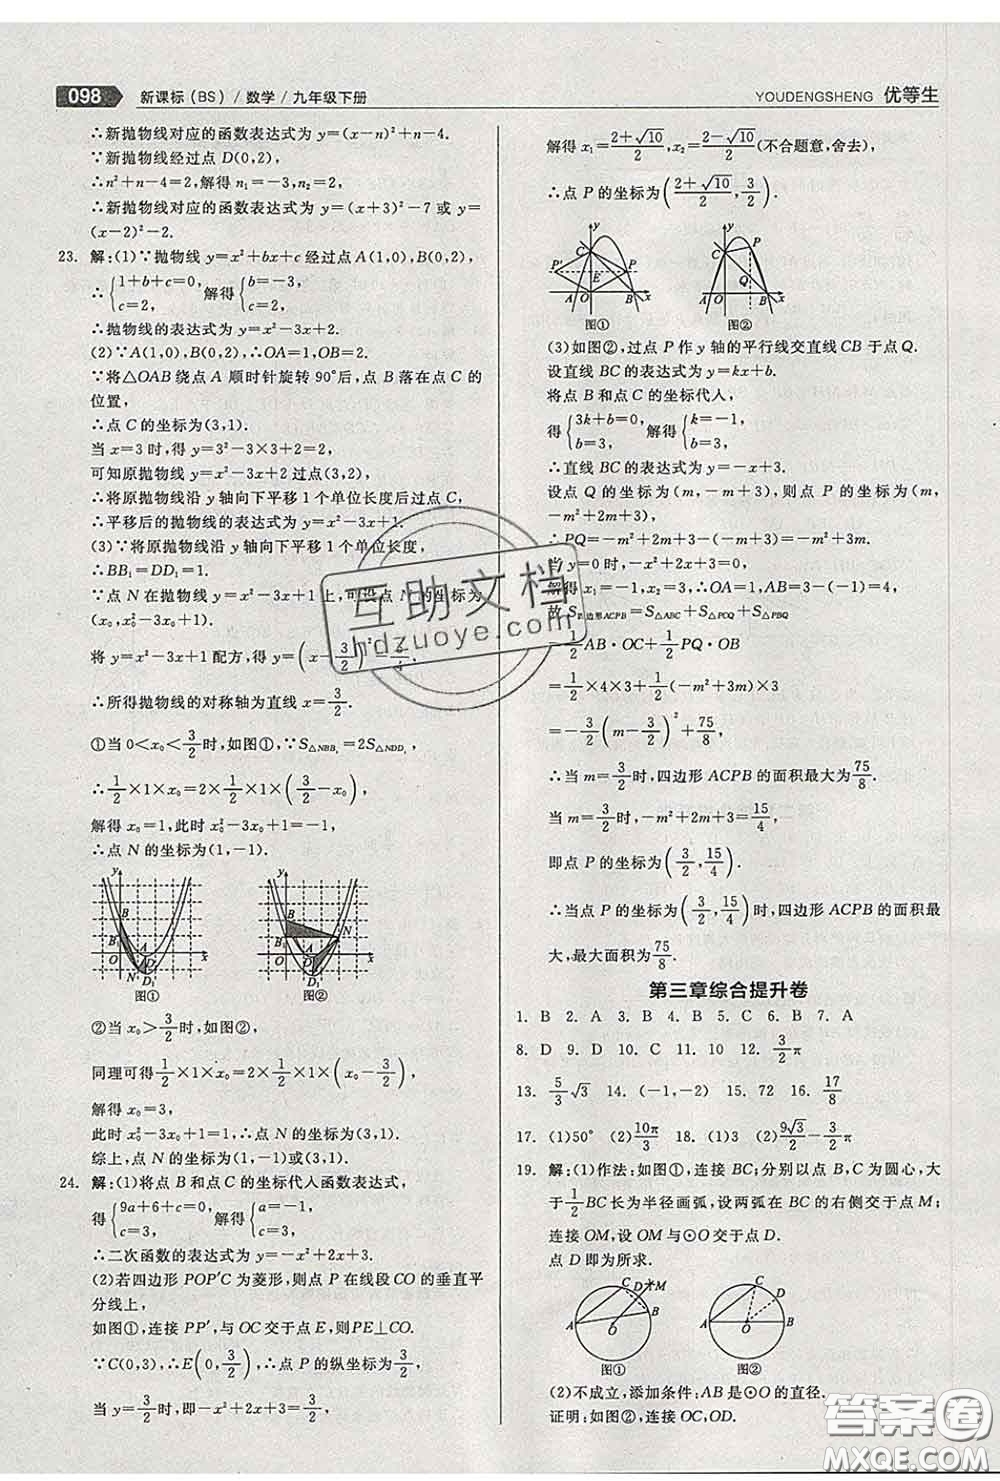 098 新课标(BS)/数学/九年级下册
YOUDENGSHENG 优等生
∴新抛物线对应的函数表达式为 y=(x-n)²+n-4.
∵新抛物线经过点 D(0,2),
∴n²+n-4=2,解得 n₁=-3,n₂=2,
∴新抛物线对应的函数表达式为 y=(x+3)²-7 或 y=
(x-2)²-2.
23. 解:(1)∵抛物线 y=x²+bx+c 经过点 A(1,0),B(0,2),
∴{1+b+c=0, c=2, 解得{b=-3, c=2,
∴抛物线的表达式为 y=x²-3x+2.
(2)∵A(1,0),B(0,2),∴OA=1,OB=2.
∵将△OAB 绕点 A 顺时针旋转 90°后,点 B 落在点 C 的
位置,
∴点 C 的坐标为(3,1).
当 x=3 时,得 y=3²-3×3+2=2,
可知原抛物线 y=x²-3x+2 过点(3,2),
∴将原抛物线沿 y 轴向下平移 1 个单位长度后过点 C,
∴平移后的抛物线的表达式为 y=x²-3x+1.
(3)∵将原抛物线沿 y 轴向下平移 1 个单位长度,
∴BB₁=DD₁=1.
∵点 N 在抛物线 y=x²-3x+1 上,可设点 N 的坐标为
(x₀,x₀²-3x₀+1).
将 y=x²-3x+1 配方,得 y=(x-3/2)²-5/4.
∴所得抛物线的对称轴为直线 x=3/2.
①当 0<x₀<3/2时,如图①,∵S△NBB₁=2S△NDD₁,
∴1/2×1×x₀=2×1/2×1×(3/2-x₀),
解得 x₀=1,此时 x₀²-3x₀+1=-1,
∴点 N 的坐标为(1,-1).
y B B₁ O A D N D₁ x 图①
y B B₁ N A O D D₁ x 图②
②当 x₀>3/2时,如图②,
同理可得1/2×1×x₀=2×1/2×1×(x₀-3/2),
解得 x₀=3,
此时 x₀²-3x₀+1=1,∴点 N 的坐标为(3,1).
综上,点 N 的坐标为(1,-1)或(3,1).
24. 解:(1)将点 B 和点 C 的坐标代入函数表达式,
得{9a+6+c=0, c=3, 解得{a=-1, c=3,
∴二次函数的表达式为 y=-x²+2x+3.
(2)若四边形 POP′C 为菱形,则点 P 在线段 CO 的垂直平
分线上,
如图①,连接 PP′,与 OC 交于点 E,则PE⊥CO.
∵C(0,3),∴E(0,3/2),∴点 P 的纵坐标为3/2,
当 y=3/2时,即-x²+2x+3=3/2,
解得 x₁=(2+√10)/2,x₂=(2-√10)/2(不合题意,舍去),
∴点 P 的坐标为((2+√10)/2,3/2).
y C P′ E P A O B x 图①
y C P Q A O B x 图②
(3)如图②,过点 P 作 y 轴的平行线交直线 CB 于点 Q.
设直线 BC 的表达式为 y=kx+b.
将点 B 和点 C 的坐标代入,
得{3k+b=0, b=3, 解得{k=-1, b=3,
∴直线 BC 的表达式为 y=-x+3.
设点 Q 的坐标为(m,-m+3),则点 P 的坐标为(m,
-m²+2m+3),
∴PQ=-m²+2m+3-(-m+3)=-m²+3m.
当 y=0 时,-x²+2x+3=0,
解得 x₁=-1,x₂=3,∴OA=1,AB=3-(-1)=4,
故 S四边形ACPB=S△ABC+S△PCQ+S△PBQ
=1/2AB·OC+1/2PQ·OB
=1/2×4×3+1/2(-m²+3m)×3
=-3/2(m-3/2)²+75/8,
∴当 m=3/2时,四边形 ACPB 的面积最大为75/8.
当 m=3/2时,-m²+2m+3=15/4,
即点 P 的坐标为(3/2,15/4).
∴当点 P 的坐标为(3/2,15/4)时,四边形 ACPB 的面积最
大,最大面积为75/8.
第三章综合提升卷
1. B 2. A 3. B 4. B 5. C 6. B 7. A
8. D 9. D 10. C 11. 10 12. 3/2π
13. 5/3√3 14. (-1,-2) 15. 72 16. 17/8
17. (1)50° (2)10π/3 18. (1)3 (2)9√3/2-3π/2
19. 解:(1)作法:如图①,连接 BC;分别以点 B,C 为圆心,大
于1/2BC 长为半径画弧,设两弧在 BC 的右侧交于点 M;
连接 OM,设 OM 与⊙O 交于点 D.
点 D 即为所求.
C D M A O B 图①
C D A O B 图②
(2)不成立,添加条件:AB 是⊙O 的直径.
证明:如图②,连接 OC,OD.
互助文档
hdzuoye.com
答案圈
MXQE.COM